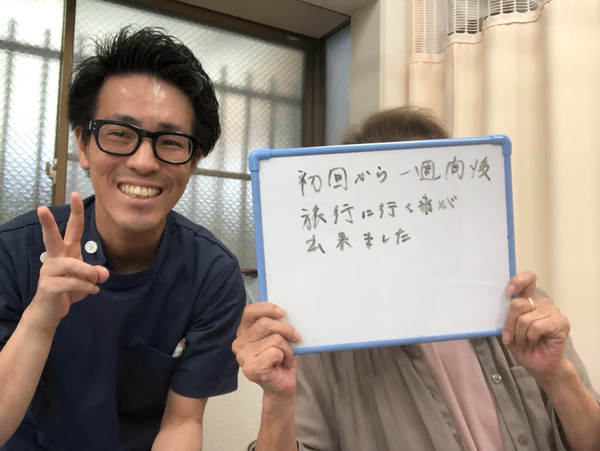 初回から一週間後
旅行に行く事が
出来ました